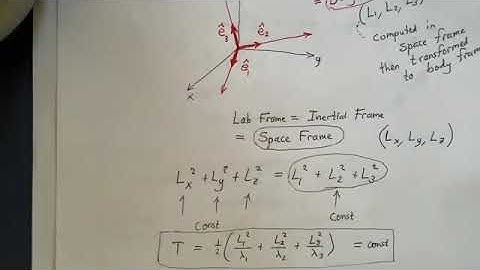 (L₁, L₂, L₃)
computed in
space frame
then transformed
to body frame
ê₃
ê₂
ê₁
x
y
Lab Frame = Inertial Frame
= Space Frame (Lx, Ly, Lz)
Lx² + Ly² + Lz² = L₁² + L₂² + L₃²
Const
Const
T = ½ (L₁²/λ₁ + L₂²/λ₂ + L₃²/λ₃) = const